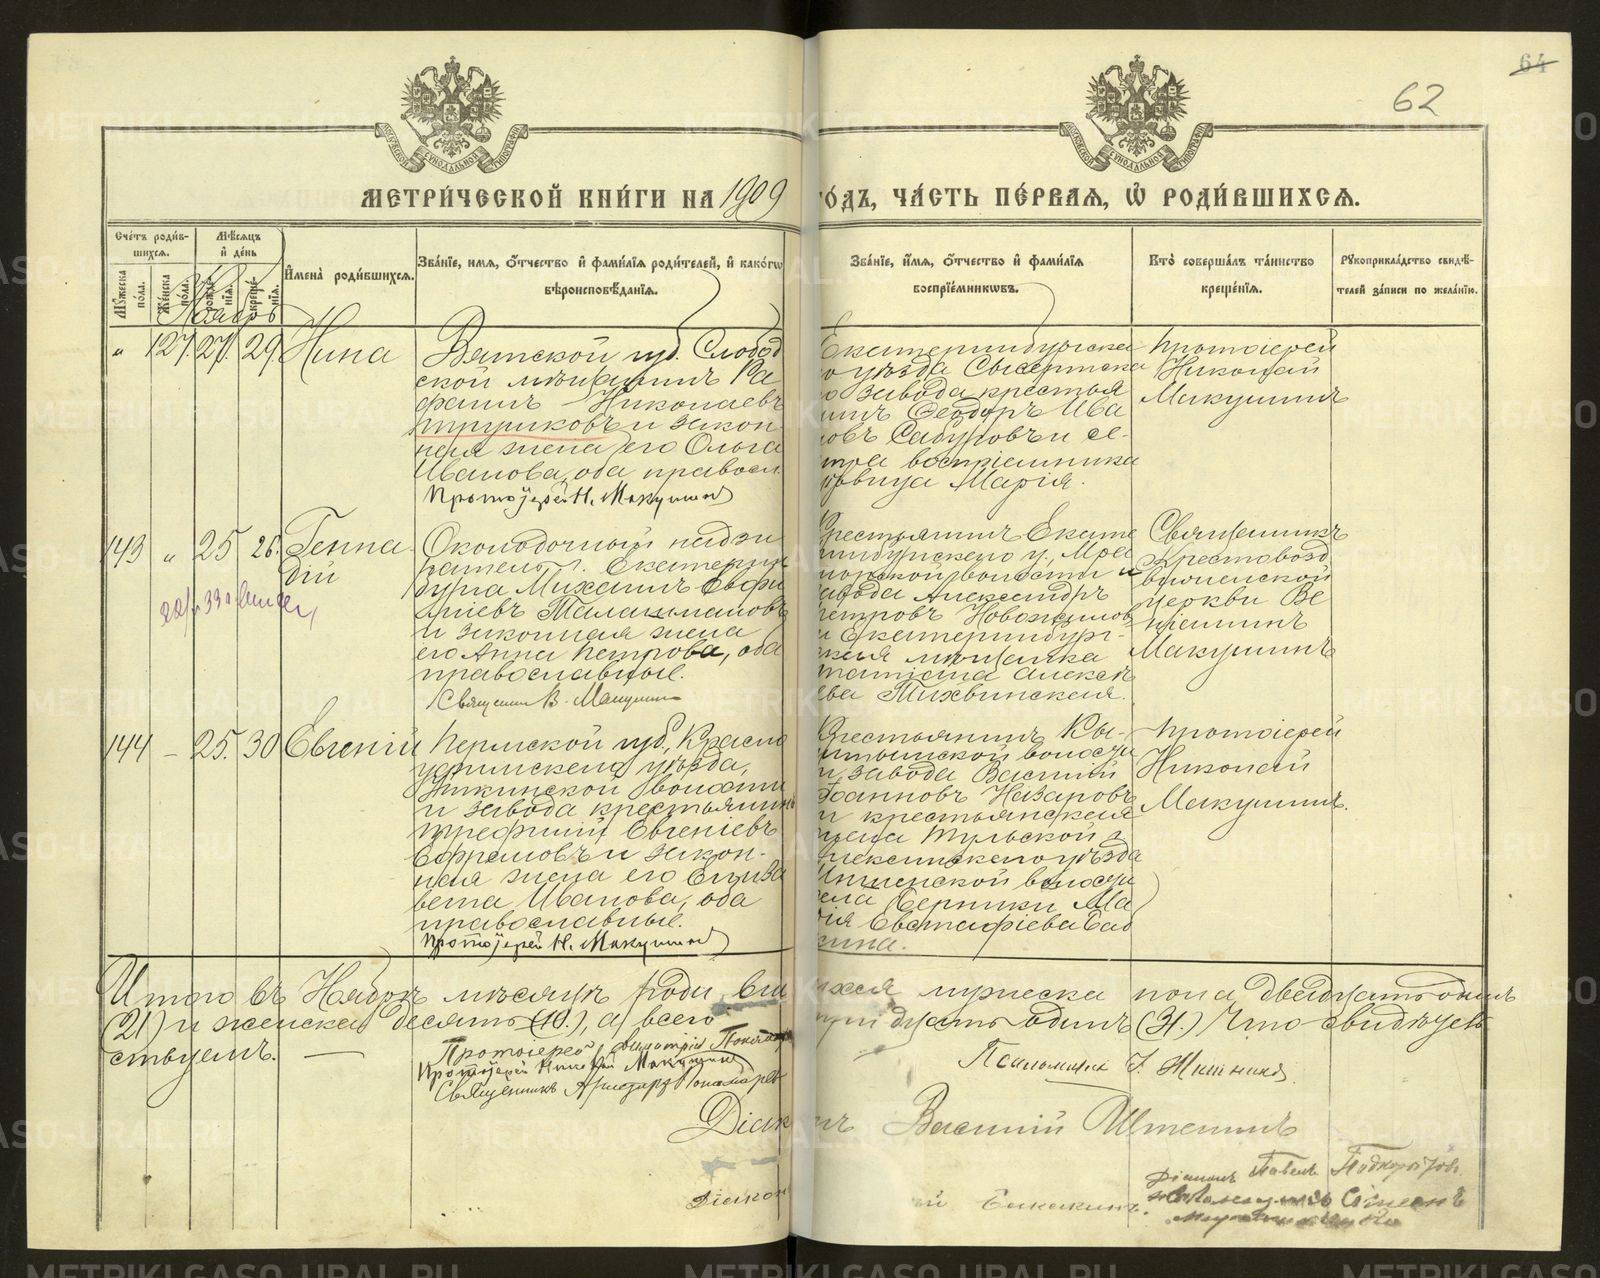 64
62
МЕТРИ́ЧЕСКОЙ КНИ́ГИ НА 1909 ГО́ДЪ, ЧА́СТЬ ПЕ́РВАЯ, Ѡ҆ РОДИ́ВШИХСЯ.
Сче́тъ роди́в-
шихся.
Мꙋ́жеска по́ла.
Же́нска по́ла.
Мѣ́сяцъ
и҆ де́нь
рожде́нїя.
креще́нїя.
Ноябрь
И҆мена̀ роди́вшихся.
Зва́нїе, и҆мя, ѻ҆́тчество и҆ фами́лїя роди́телей, и҆ како́гѡ
вѣроисповѣ́данїя.
Зва́нїе, и҆́мя, ѻ҆́тчество и҆ фами́лїя
воспрїе́мникѡвъ.
Кто̀ соверша́лъ та́инство
креще́нїя.
Рꙋкоприкла́дство свидѣ́-
телей за́писи по жела́нїю.
„ 127. 27. 29. Нина
Вятской губ. Слобод
ской мѣщанинъ Ра
фаилъ Николаевъ
и закон-
ная жена его Ольга
Иванова, оба правосл.
Протоіерей Н. Макушинъ
Екатеринбургска
го уѣзда Сысертска
го завода крестья
нинъ Ѳеодоръ Ива
новъ Сабуровъ и се-
стра воспріемника
дѣвица Марія.
Протоіерей
Николай
Макушинъ
143 „ 25 26. Генна-
дій
Околодочный надзи
ратель г. Екатерин
бурга Михаилъ Евфи
міевъ Талашмановъ
и законная жена
его Анна Петрова, оба
православные.
Священникъ В. Макушинъ
Крестьянинъ Екате
ринбургскаго у., Мра
морской волости и
завода Александръ
Петровъ Новожиловъ
и Екатеринбург-
ская мѣщанка
Алексѣ
ева Тихвинская.
Священникъ
Крестовозд
виженской
церкви Ве
ніаминъ
Макушинъ
144 – 25. 30 Евгеній
Пермской губ., Красно
уфимскаго уѣзда,
Уткинской волости
и завода крестьянинъ
Трефилій Евгеніевъ
Ефремовъ и закон-
ная жена его Елиза
вета Иванова, оба
православные.
Протоіерей Н. Макушинъ
Крестьянинъ Кы-
штымской волости
и завода Василій
Іоанновъ Назаровъ
и крестьянская
жена Тульской г.
Алексинскаго уѣзда
волости
села Ма
рія Евстафіева
Протоіерей
Николай
Макушинъ.
Итого въ Ноябрѣ мѣсяцѣ родившихся мужеска пола двадцать одинъ
(21) и женска десять (10.), а всего тридцать одинъ (31.) Что свидѣтель
ствуемъ. —
Протоіерей
Протоіерей Николай Макушинъ
Священникъ
Псаломщикъ
Діаконъ Василій
Діаконъ
Діаконъ Павелъ